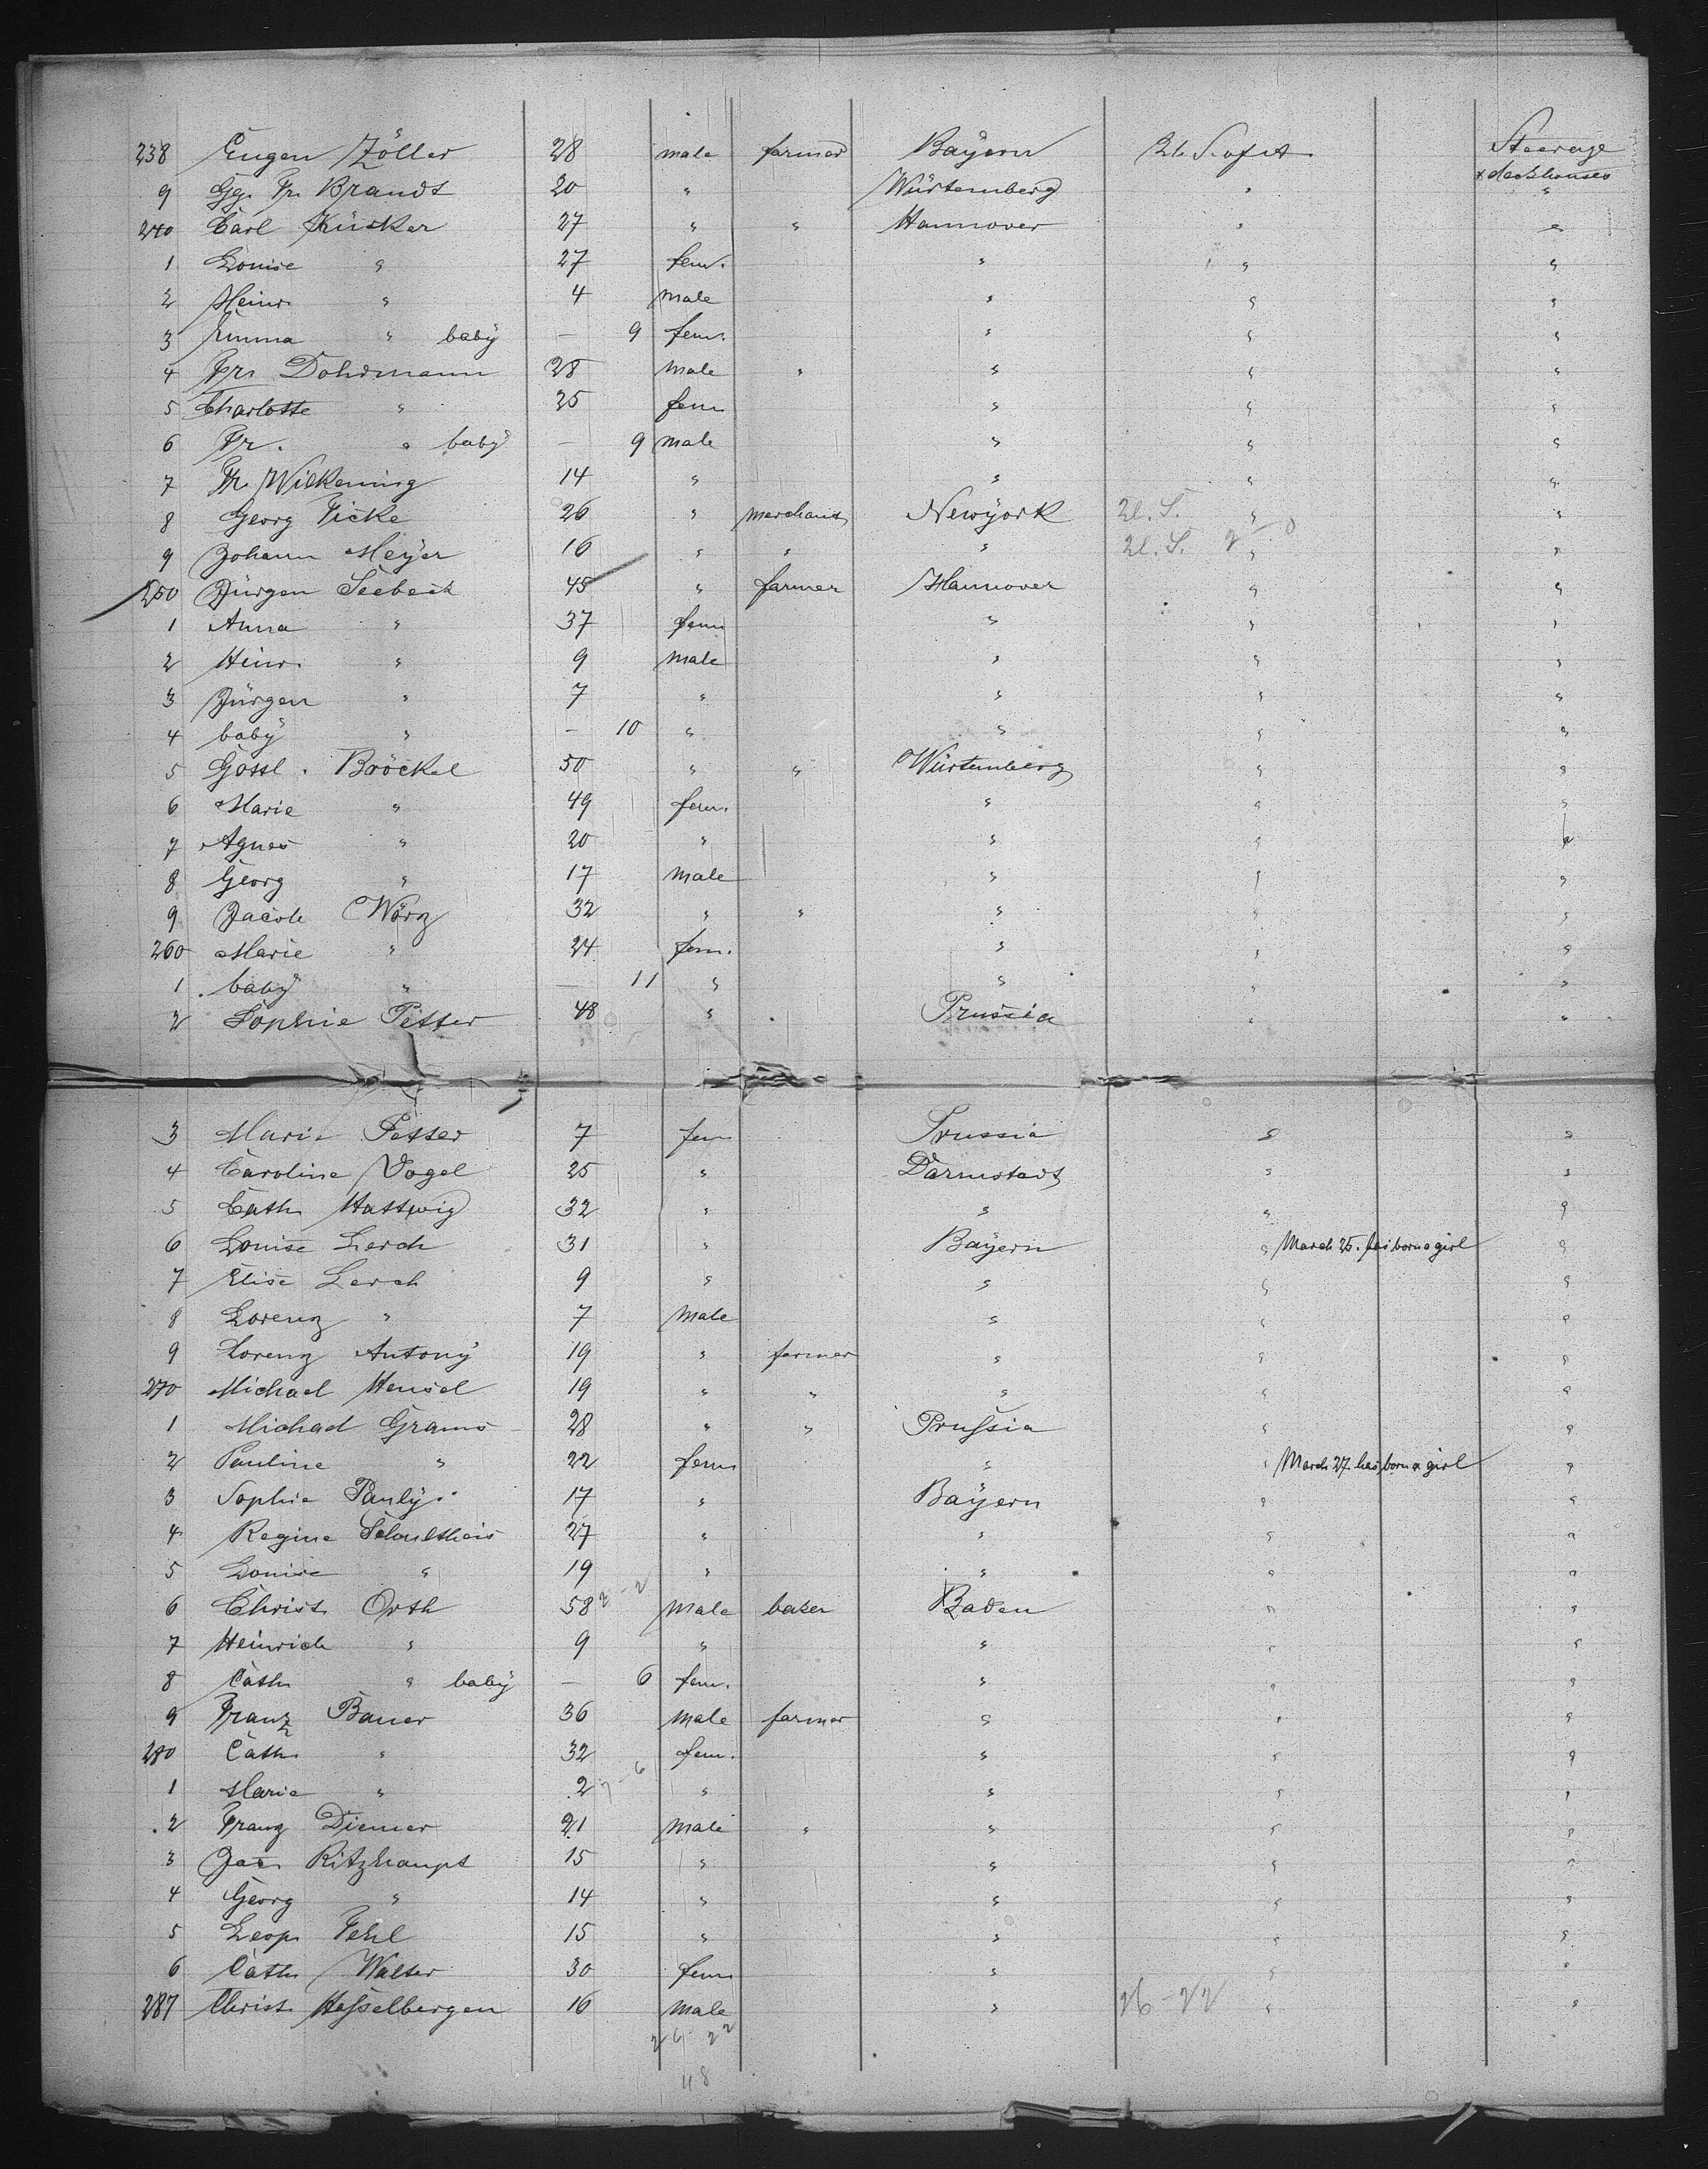 238 Eugen Zöller 28 male farmer Bayern U. S. of A. Steerage
& deckhouses
9 Gg. Fr. Brandt 20 " Würtemberg " "
240 Carl Küsker 27 " " Hannover " "
1 Louise " 27 fem. " " "
2 Heinr. " 4 male " " "
3 Emma " baby — 9 fem. " " "
4 Fr. Dohrmann 28 male " " " "
5 Charlotte " 25 fem " " "
6 Fr. " baby — 9 male " " "
7 Fr. Wilkening 14 " " " "
8 Georg Ficke 26 " merchant Newyork U. S. " "
9 Johann Meyer 16 " " " U. S. " "
250 Jürgen Seebeck 45 " farmer Hannover " "
1 Anna " 37 fem " " "
2 Heinr. " 9 male " " "
3 Jürgen " 7 " " " "
4 baby " — 10 " " " "
5 Gottl. Bröckel 50 " " Würtemberg " "
6 Marie " 49 fem. " " "
7 Agnes " 20 " " " "
8 Georg " 17 male " " "
9 Jacob Wörz 32 " " " " "
260 Marie " 24 fem. " " "
1 baby " — 11 " " " "
2 Sophie Petter 48 " Prussia " "
3 Marie Petter 7 fem Prussia " "
4 Caroline Vogel 25 " Darmstadt " "
5 Cath. Hattwig 32 " " " "
6 Louise Lerch 31 " Bayern " March 25. has born a girl "
7 Elise Lerch 9 " " " "
8 Lorenz " 7 male " " "
9 Lorenz Antony 19 " farmer " " "
270 Michael Hensel 19 " " " " "
1 Michael Grams 28 " " Prussia " "
2 Pauline " 22 fem " " March 27. has born a girl "
3 Sophie Pauly 17 " Bayern " "
4 Regine Schultheis 27 " " " "
5 Louise " 19 " " " "
6 Christ. Orth 58 male baker Baden " "
7 Heinrich " 9 " " " "
8 Cath. " baby — 6 fem. " " "
9 Franz Bauer 36 male farmer " " "
280 Cath. " 32 fem. " " "
1 Marie " 2 " " " "
2 Franz Diemer 21 male " " " "
3 Jac. Ritzhaupt 15 " " " "
4 Georg " 14 " " " "
5 Leop. Fehl 15 " " " "
6 Cath. Walter 30 fem " " "
287 Christ. Hesselbergen 16 male " 26-22 " "
26-22
48